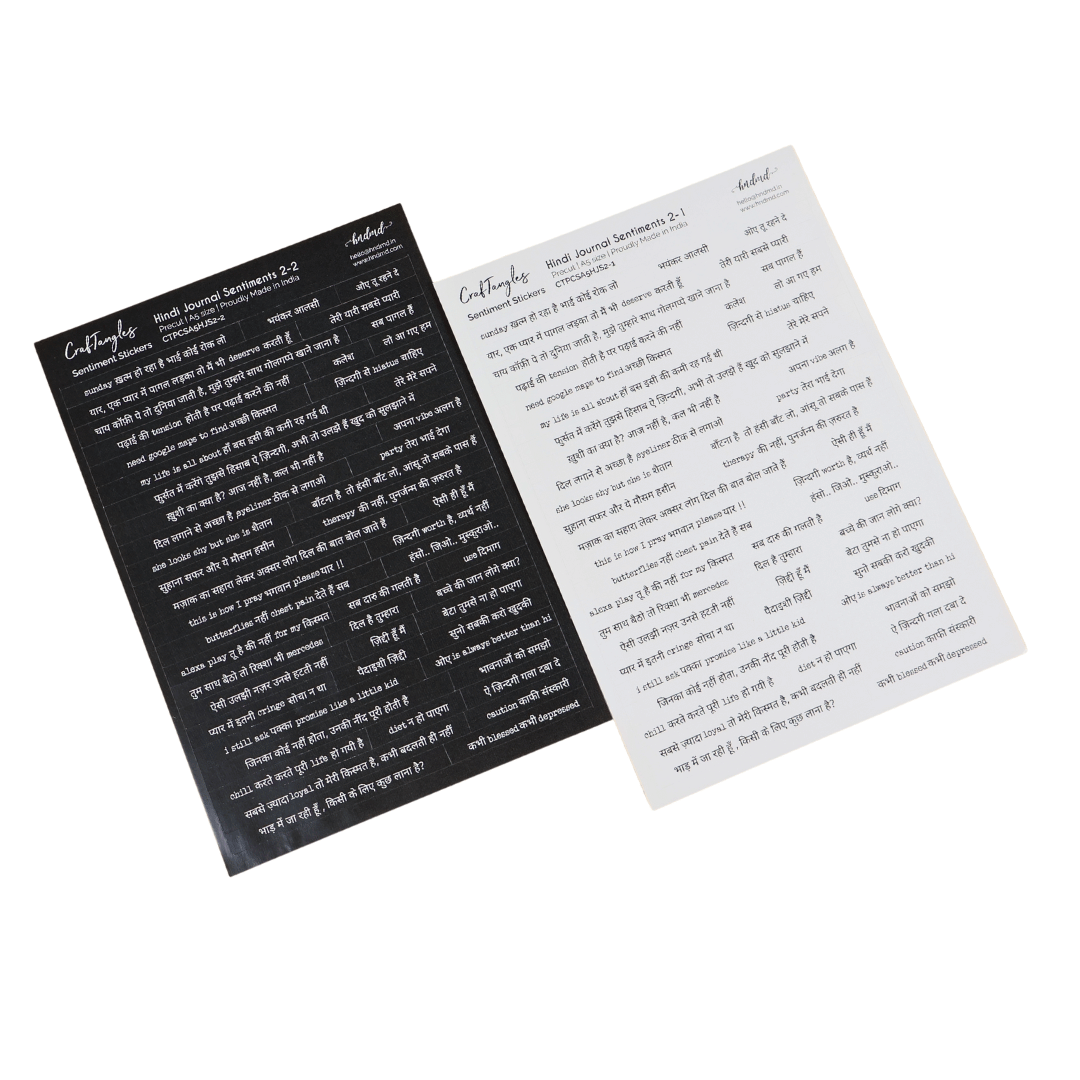 CrafTangles
Sentiment Stickers
Hindi Journal Sentiments 2-2
Precut | A5 size | Proudly Made in India
CTPCSA5HJS2-2
hndmd
hello@hndmd.in
www.hndmd.com
sunday ख़त्म हो रहा है भाई कोई रोक लो
भयंकर आलसी
ओए तू रहने दे
यार, एक प्यार में पागल लड़का तो मैं भी deserve करती हूँ
तेरी यारी सबसे प्यारी
चाय कॉफ़ी पे तो दुनिया जाती है, मुझे तुम्हारे साथ गोलगप्पे खाने जाना है
सब पागल हैं
पढ़ाई की tension होती है पर पढ़ाई करने की नहीं
कलेश
लो आ गए हम
need google maps to find अच्छी किस्मत
ज़िन्दगी से hiatus चाहिए
my life is all about हाँ बस इसी की कमी रह गई थी
तेरे मेरे सपने
फुर्सत में करेंगे तुझसे हिसाब ऐ ज़िन्दगी, अभी तो उलझे हैं खुद को सुलझाने में
ख़ुशी का क्या है? आज नहीं है, कल भी नहीं है
अपना vibe अलग है
दिल लगाने से अच्छा है eyeliner ठीक से लगाओ
party तेरा भाई देगा
she looks shy but she is शैतान
बाँटना है तो हंसी बाँट लो, आंसू तो सबके पास हैं
सुहाना सफर और ये मौसम हसीन
therapy की नहीं, पुनर्जन्म की ज़रुरत है
मज़ाक का सहारा लेकर अक्सर लोग दिल की बात बोल जाते हैं
ऐसी ही हूँ मैं
this is how I pray भगवान please यार !!
ज़िन्दगी worth है, व्यर्थ नहीं
butterflies नहीं chest pain देते हैं सब
हंसो.. जिओ.. मुस्कुराओ..
alexa play तू है की नहीं for my किस्मत
सब दारु की गलती है
use दिमाग
तुम साथ बैठो तो रिक्शा भी mercedes
दिल है तुम्हारा
बच्चे की जान लोगे क्या?
ऐसी उलझी नज़र उनसे हटती नहीं
ज़िद्दी हूँ मैं
बेटा तुमसे ना हो पाएगा
प्यार में इतनी cringe सोचा न था
पैदाइशी ज़िद्दी
सुनो सबकी करो खुदकी
i still ask पक्का promise like a little kid
ओए is always better than hi
जिनका कोई नहीं होता, उनकी नींद पूरी होती है
भावनाओं को समझो
chill करते करते पूरी life हो गयी है
diet न हो पाएगा
ऐ ज़िन्दगी गला दबा दे
सबसे ज़्यादा loyal तो मेरी किस्मत है, कभी बदलती ही नहीं
caution काफी संस्कारी
भाड़ में जा रही हूँ , किसी के लिए कुछ लाना है?
कभी blessed कभी depressed
CrafTangles
Sentiment Stickers
Hindi Journal Sentiments 2-1
Precut | A5 size | Proudly Made in India
CTPCSA5HJS2-1
hndmd
hello@hndmd.in
www.hndmd.com
sunday ख़त्म हो रहा है भाई कोई रोक लो
भयंकर आलसी
ओए तू रहने दे
यार, एक प्यार में पागल लड़का तो मैं भी deserve करती हूँ
तेरी यारी सबसे प्यारी
चाय कॉफ़ी पे तो दुनिया जाती है, मुझे तुम्हारे साथ गोलगप्पे खाने जाना है
सब पागल हैं
पढ़ाई की tension होती है पर पढ़ाई करने की नहीं
कलेश
लो आ गए हम
need google maps to find अच्छी किस्मत
ज़िन्दगी से hiatus चाहिए
my life is all about हाँ बस इसी की कमी रह गयी थी
तेरे मेरे सपने
फुर्सत में करेंगे तुझसे हिसाब ऐ ज़िन्दगी, अभी तो उलझे हैं खुद को सुलझाने में
ख़ुशी का क्या है? आज नहीं है, कल भी नहीं है
अपना vibe अलग है
दिल लगाने से अच्छा है eyeliner ठीक से लगाओ
party तेरा भाई देगा
she looks shy but she is शैतान
बाँटना है तो हंसी बाँट लो, आंसू तो सबके पास है
सुहाना सफर और ये मौसम हसीन
therapy की नहीं, पुनर्जन्म की ज़रुरत है
मज़ाक का सहारा लेकर अक्सर लोग दिल की बात बोल जाते हैं
ऐसी ही हूँ मैं
this is how I pray भगवान please यार !!
ज़िन्दगी worth है, व्यर्थ नहीं
butterflies नहीं chest pain देते हैं सब
हंसो.. जिओ.. मुस्कुराओ..
alexa play तू है की नहीं for my किस्मत
सब दारु की गलती है
use दिमाग
तुम साथ बैठो तो रिक्शा भी mercedes
दिल है तुम्हारा
बच्चे की जान लोगे क्या?
ऐसी उलझी नज़र उनसे हटती नहीं
ज़िद्दी हूँ मैं
बेटा तुमसे ना हो पाएगा
प्यार में इतनी cringe सोचा न था
पैदाइशी ज़िद्दी
सुनो सबकी करो खुदकी
i still ask पक्का promise like a little kid
ओए is always better than hi
जिनका कोई नहीं होता, उनकी नींद पूरी होती है
भावनाओं को समझो
chill करते करते पूरी life हो गयी है
diet न हो पाएगा
ऐ ज़िन्दगी गला दबा दे
सबसे ज़्यादा loyal तो मेरी किस्मत है, कभी बदलती ही नहीं
caution काफी संस्कारी
भाड़ में जा रही हूँ , किसी के लिए कुछ लाना है?
कभी blessed कभी depressed